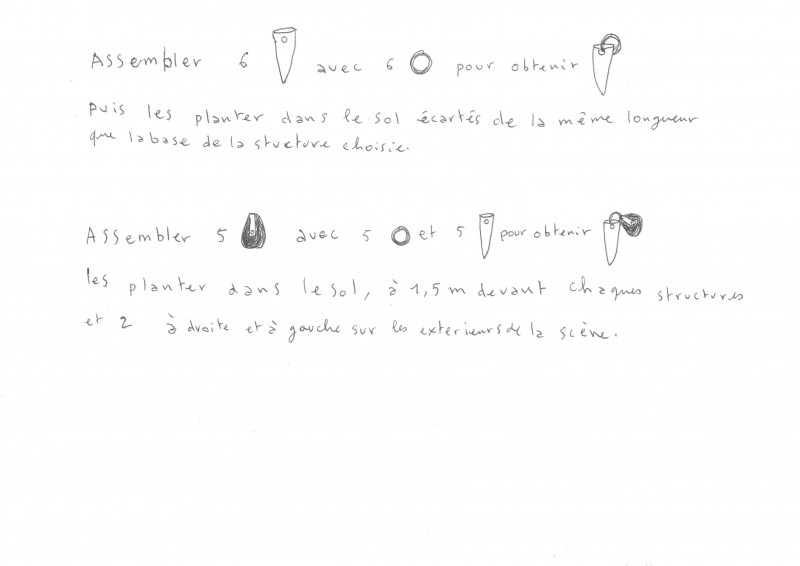 Assembler 6 avec 6 pour obtenir
puis les planter dans le sol écartés de la même longueur
que la base de la stucture choisie.
Assembler 5 avec 5 et 5 pour obtenir
les planter dans le sol, à 1,5 m devant chaques structures
et 2 à droite et à gauche sur les exterieurs de la scène.